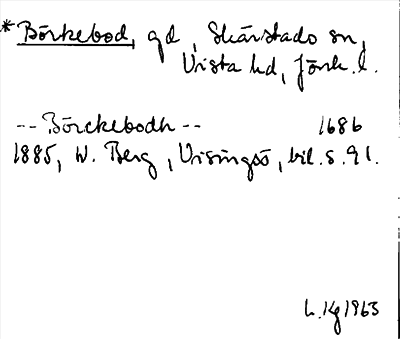 *Börkebod, gd, Skärstads sn,
Vista hd, Jönk. l.
-- Börckebodh -- 1686
1885, W. Berg, Visingsö, bil. s. 91.
L. Kg 1963